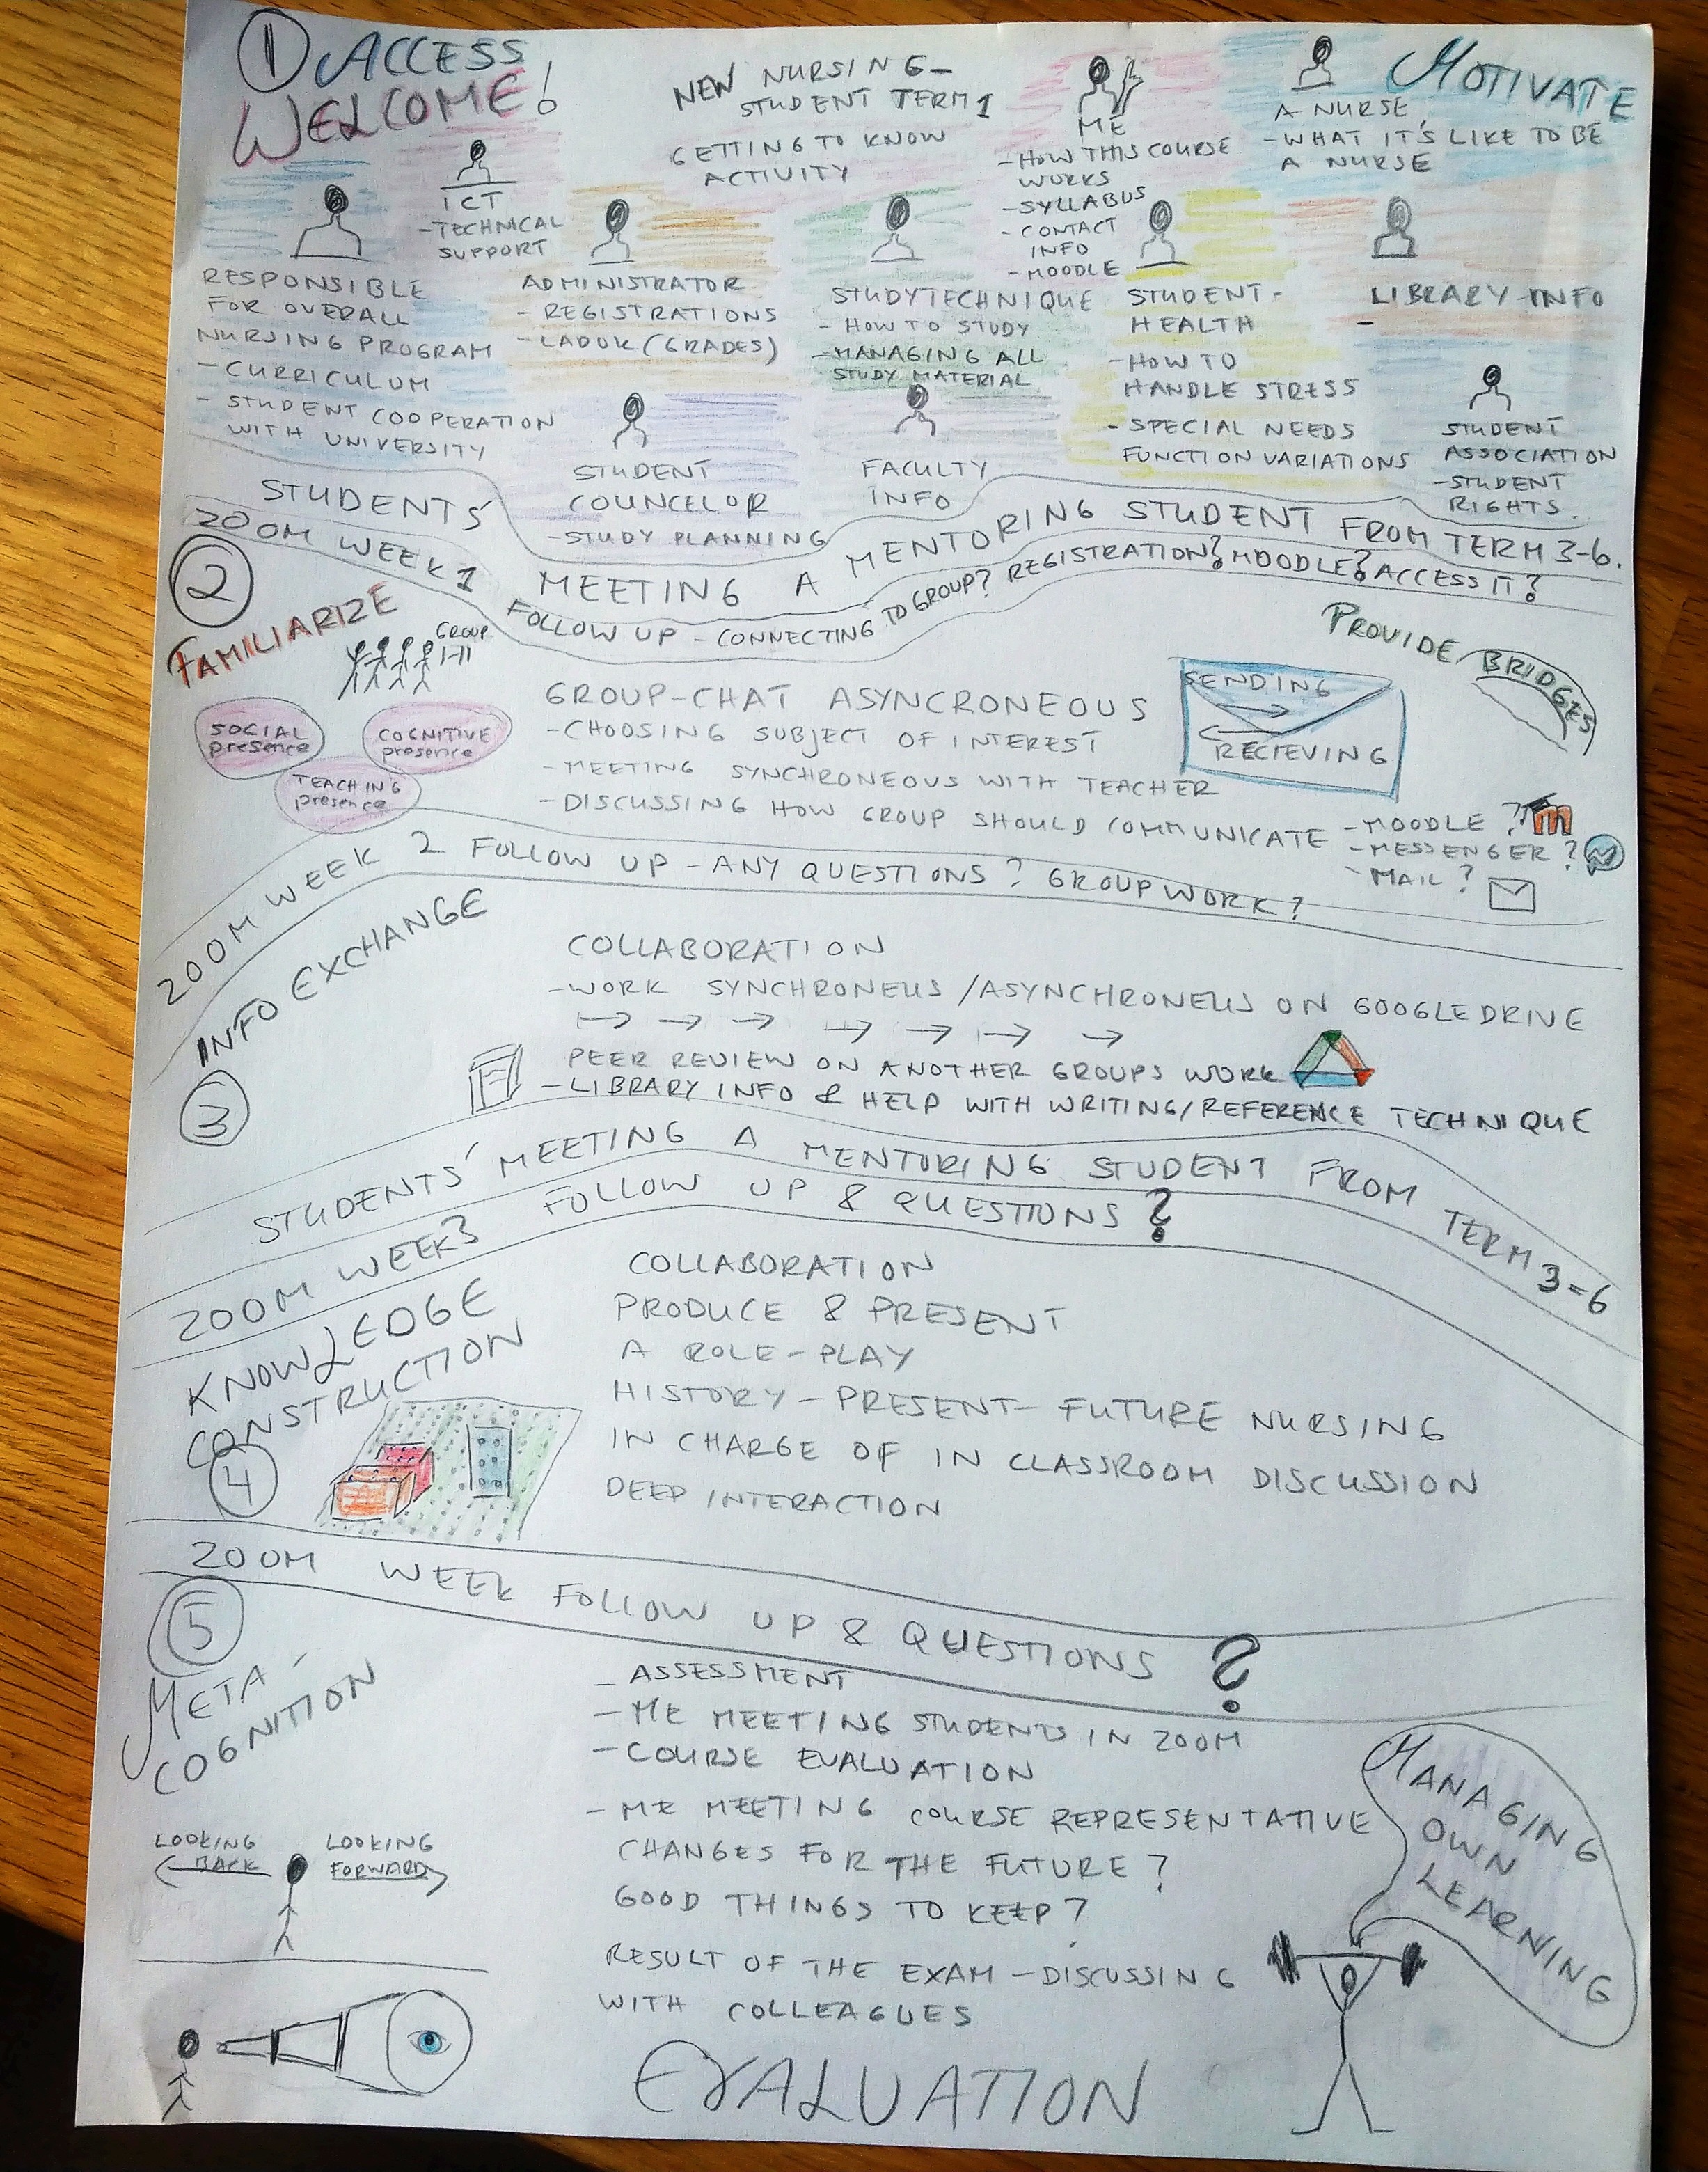 1 ACCESS
WELCOME!
NEW NURSING-
STUDENT TERM 1
GETTING TO KNOW
ACTIVITY
ME
- HOW THIS COURSE
WORKS
- SYLLABUS
- CONTACT
INFO
- MOODLE
MOTIVATE
A NURSE,
- WHAT IT'S LIKE TO BE
A NURSE
ICT
- TECHNICAL
SUPPORT
RESPONSIBLE
FOR OVERALL
NURSING PROGRAM
- CURRICULUM
- STUDENT COOPERATION
WITH UNIVERSITY
ADMINISTRATOR
- REGISTRATIONS
- LADOK (GRADES)
STUDYTECHNIQUE
- HOW TO STUDY
- MANAGING ALL
STUDY MATERIAL
STUDENT-
HEALTH
- HOW TO
HANDLE STRESS
- SPECIAL NEEDS
FUNCTION VARIATIONS
LIBRARY-INFO
-
STUDENT
COUNCELOR
- STUDY PLANNING
FACULTY
INFO
STUDENT
ASSOCIATION
- STUDENT
RIGHTS.
STUDENTS' MEETING A MENTORING STUDENT FROM TERM 3-6.
ZOOM WEEK 1 FOLLOW UP - CONNECTING TO GROUP? REGISTRATION? MOODLE? ACCESS IT?
2
FAMILIARIZE
GROUP
1-11
SOCIAL
presence
COGNITIVE
presence
TEACHING
presence
GROUP-CHAT ASYNCRONEOUS
- CHOOSING SUBJECT OF INTEREST
- MEETING SYNCHRONEOUS WITH TEACHER
- DISCUSSING HOW GROUP SHOULD COMMUNICATE
- MOODLE ? m
- MESSENGER ?
- MAIL ?
SENDING
RECIEVING
PROVIDE BRIDGES
ZOOM WEEK 2 FOLLOW UP - ANY QUESTIONS? GROUPWORK?
INFO EXCHANGE
3
COLLABORATION
- WORK SYNCHRONEUS/ASYNCHRONEUS ON GOOGLEDRIVE
PEER REVIEW ON ANOTHER GROUPS WORK
- LIBRARY INFO & HELP WITH WRITING/REFERENCE TECHNIQUE
STUDENTS' MEETING A MENTORING STUDENT FROM TERM 3-6
ZOOM WEEK 3 FOLLOW UP & QUESTIONS ?
KNOWLEDGE
CONSTRUCTION
4
COLLABORATION
PRODUCE & PRESENT
A ROLE-PLAY
HISTORY - PRESENT - FUTURE NURSING
IN CHARGE OF IN CLASSROOM DISCUSSION
DEEP INTERACTION
ZOOM WEEK FOLLOW UP & QUESTIONS ?
5
META-
COGNITION
- ASSESSMENT
- ME MEETING STUDENTS IN ZOOM
- COURSE EVALUATION
- ME MEETING COURSE REPRESENTATIVE
CHANGES FOR THE FUTURE?
GOOD THINGS TO KEEP?
RESULT OF THE EXAM - DISCUSSING
WITH COLLEAGUES
LOOKING
BACK
LOOKING
FORWARD
MANAGING
OWN
LEARNING
EVALUATION